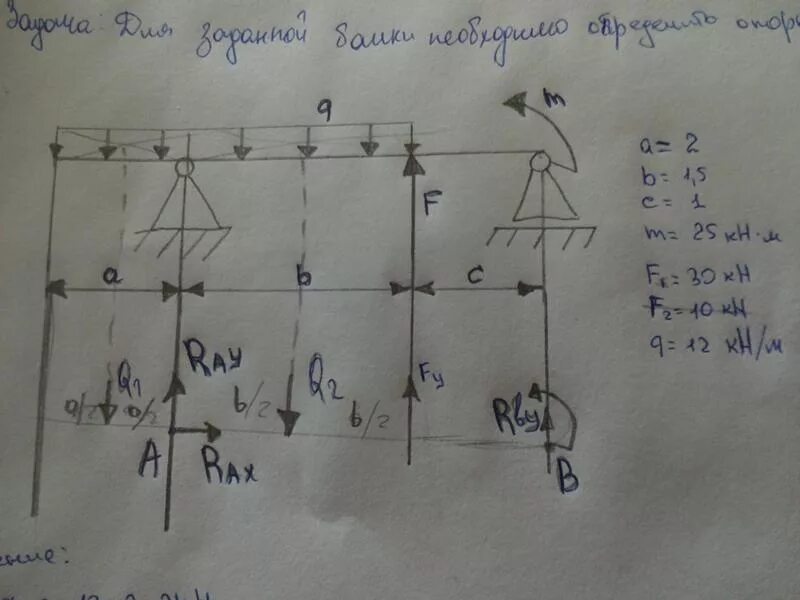 Задача: Для заданной балки необходимо определить
q
m
a = 2
b = 1,5
c = 1
m = 25 кН·м
F₁ = 30 кН
F₂ = 10 кН
q = 12 кН/м
F
a
b
c
Q₁
RAy
Q₂
Fy
a/2
a/2
b/2
b/2
RBy
A
RAx
B